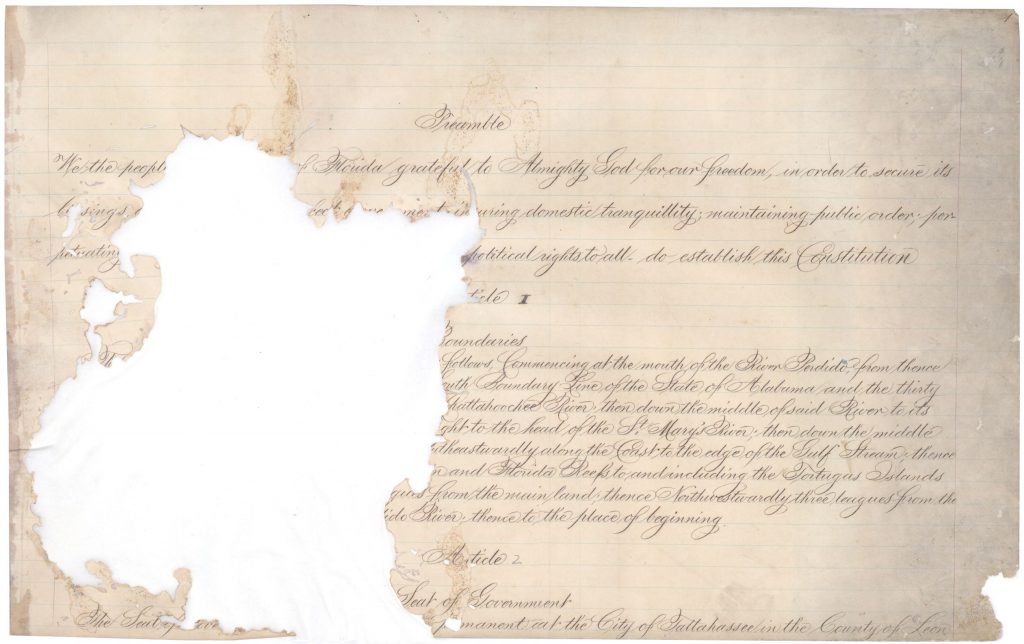 Preamble
We the people of Florida grateful to Almighty God for our freedom, in order to secure its
insuring domestic tranquillity; maintaining public order; per-
petuating political rights to all do establish this Constitution
Article 1
Boundaries
follows, Commencing at the mouth of the River Perdido, from thence
South Boundary Line of the State of Alabama and the thirty
Chattahoochee River, then down the middle of said River to its
to the head of the St. Mary's River, then down the middle
along the Coast to the edge of the Gulf Stream, thence
and Florida Reefs to and including the Tortugas Islands
from the main land, thence Northwestwardly three leagues from the
River, thence to the place of beginning.
Article 2
Seat of Government
The Seat of at the City of Tallahassee in the County of Leon